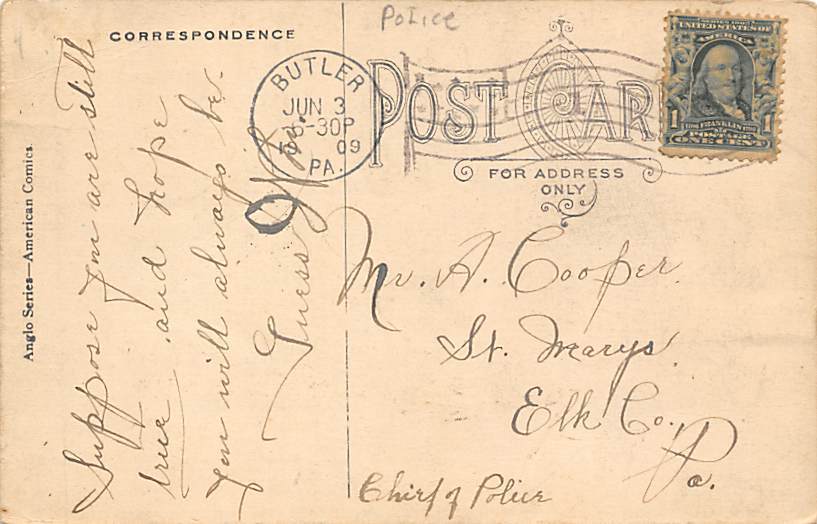 Police
CORRESPONDENCE
POST CARD
FOR ADDRESS
ONLY
BUTLER
JUN 3
5-30P
09
PA.
SERIES 1902
UNITED STATES OF
AMERICA
1 FRANKLIN 1
POSTAGE
ONE CENT
Anglo Series—American Comics
Suppose you are still
true and hope
you will always be.
Guess Who.
Mr. A. Cooper.
St. Marys.
Elk Co.
Pa.
Chief of Police